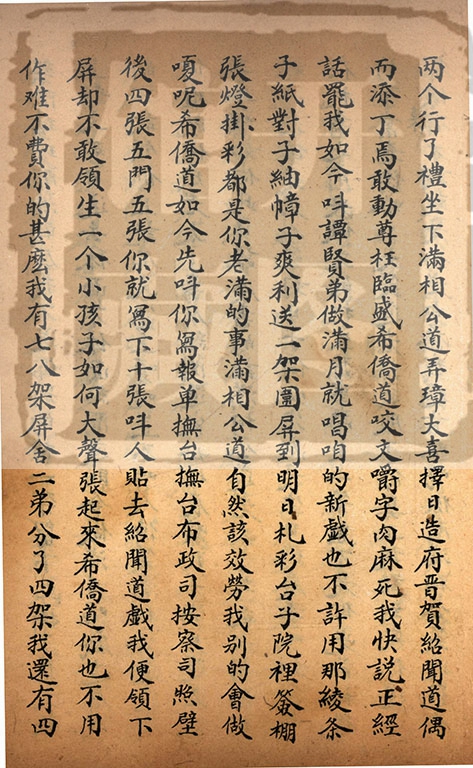 两个行了禮坐下滿相公道弄璋大喜擇日造府晋賀紹聞道偶
而添丁焉敢動尊枉臨盛希僑道咬文嚼字肉麻死我快説正經
話罷我如今叫譚賢弟做滿月就唱咱的新戲也不許用那綾条
子紙對子紬幛子爽利送一架圍屏到明日札彩台子院裡簽棚
張燈掛彩都是你老滿的事滿相公道自然該效勞我别的會做
嗄呢希僑道如今先叫你寫報单撫台撫台布政司按察司照壁
後四張五門五張你就寫下十張叫人貼去紹聞道戲我便領下
屏却不敢領生一个小孩子如何大聲張起來希僑道你也不用
作难不費你的甚麽我有七八架屏舍二弟分了四架我還有四